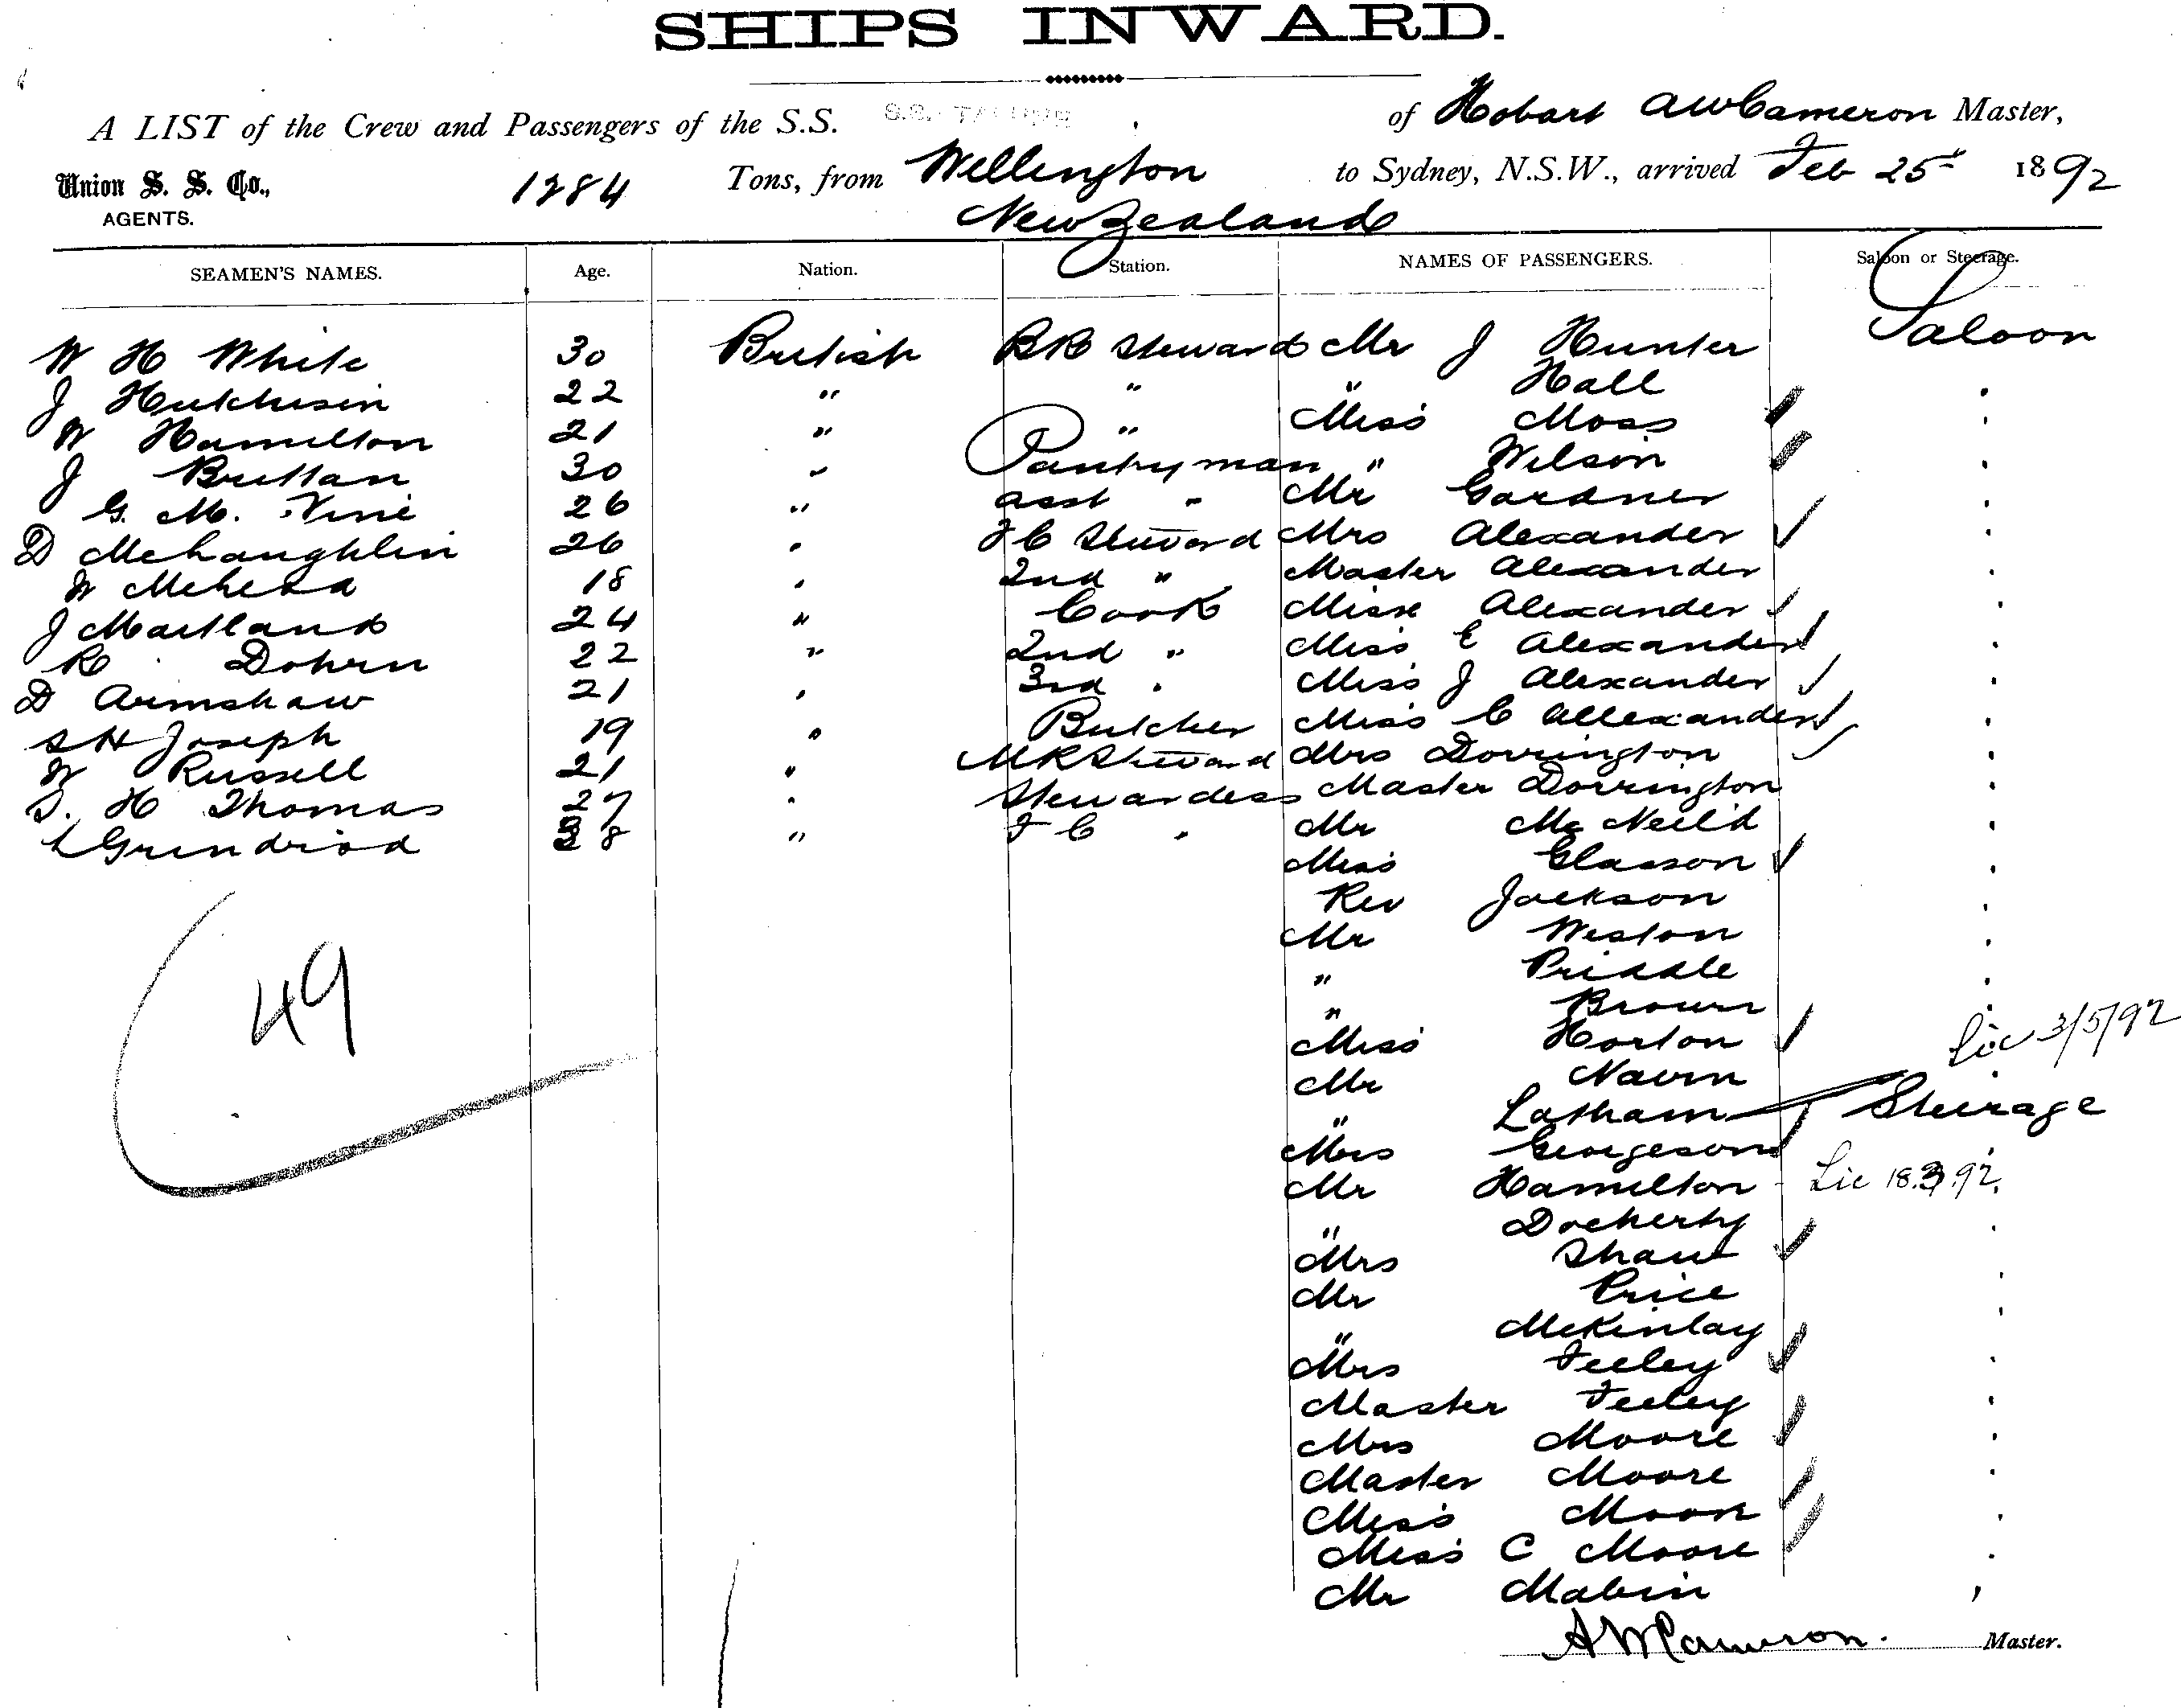 SHIPS INWARD.
A LIST of the Crew and Passengers of the S.S. S.S. TAUNE of Hobart AW Cameron Master,
Union S. S. Co., 1284 Tons, from Wellington to Sydney, N.S.W., arrived Feb 25 1892
AGENTS. New Zealand
SEAMEN'S NAMES. Age. Nation. Station. NAMES OF PASSENGERS. Saloon or Steerage.
W H White 30 British BR Steward Mr J Hunter Saloon
J Hutchisin 22 " " " Hall
W Hamilton 21 " " Miss Moss
J Brittan 30 " Pantryman " Wilson
G. M. Vine 26 " asst " Mr Gardner
D McLaughlin 26 " F C Steward Mrs Alexander
W 18 " 2nd " Master Alexander
J Maitland 24 " Cook Miss Alexander
R Dohrn 22 " 2nd " Miss E Alexander
D Armshaw 21 " 3rd " Miss J Alexander
S H Joseph 19 " Butcher Miss C Allexander
W Russell 21 " M R Steward Mrs Dorrington
S. H Thomas 27 " Stewardess Master Dorrington
L Grindrod 38 " F C " Mr McNeild
Miss Glasson
Rev Jackson
Mr Weston
" Priddle
" Brown
49
Miss Horton Lic 3/5/92
Mr Navin
" Latham Steerage
Mrs Georgeson
Mr Hamilton Lic 18.3.92.
" Docherty
Mrs Shaw
Mr Price
" McKinlay
Mrs Feeley
Master Feeley
Mrs Moore
Master Moore
Miss Moore
Miss C Moore
Mr Mabin
A W Cameron. Master.